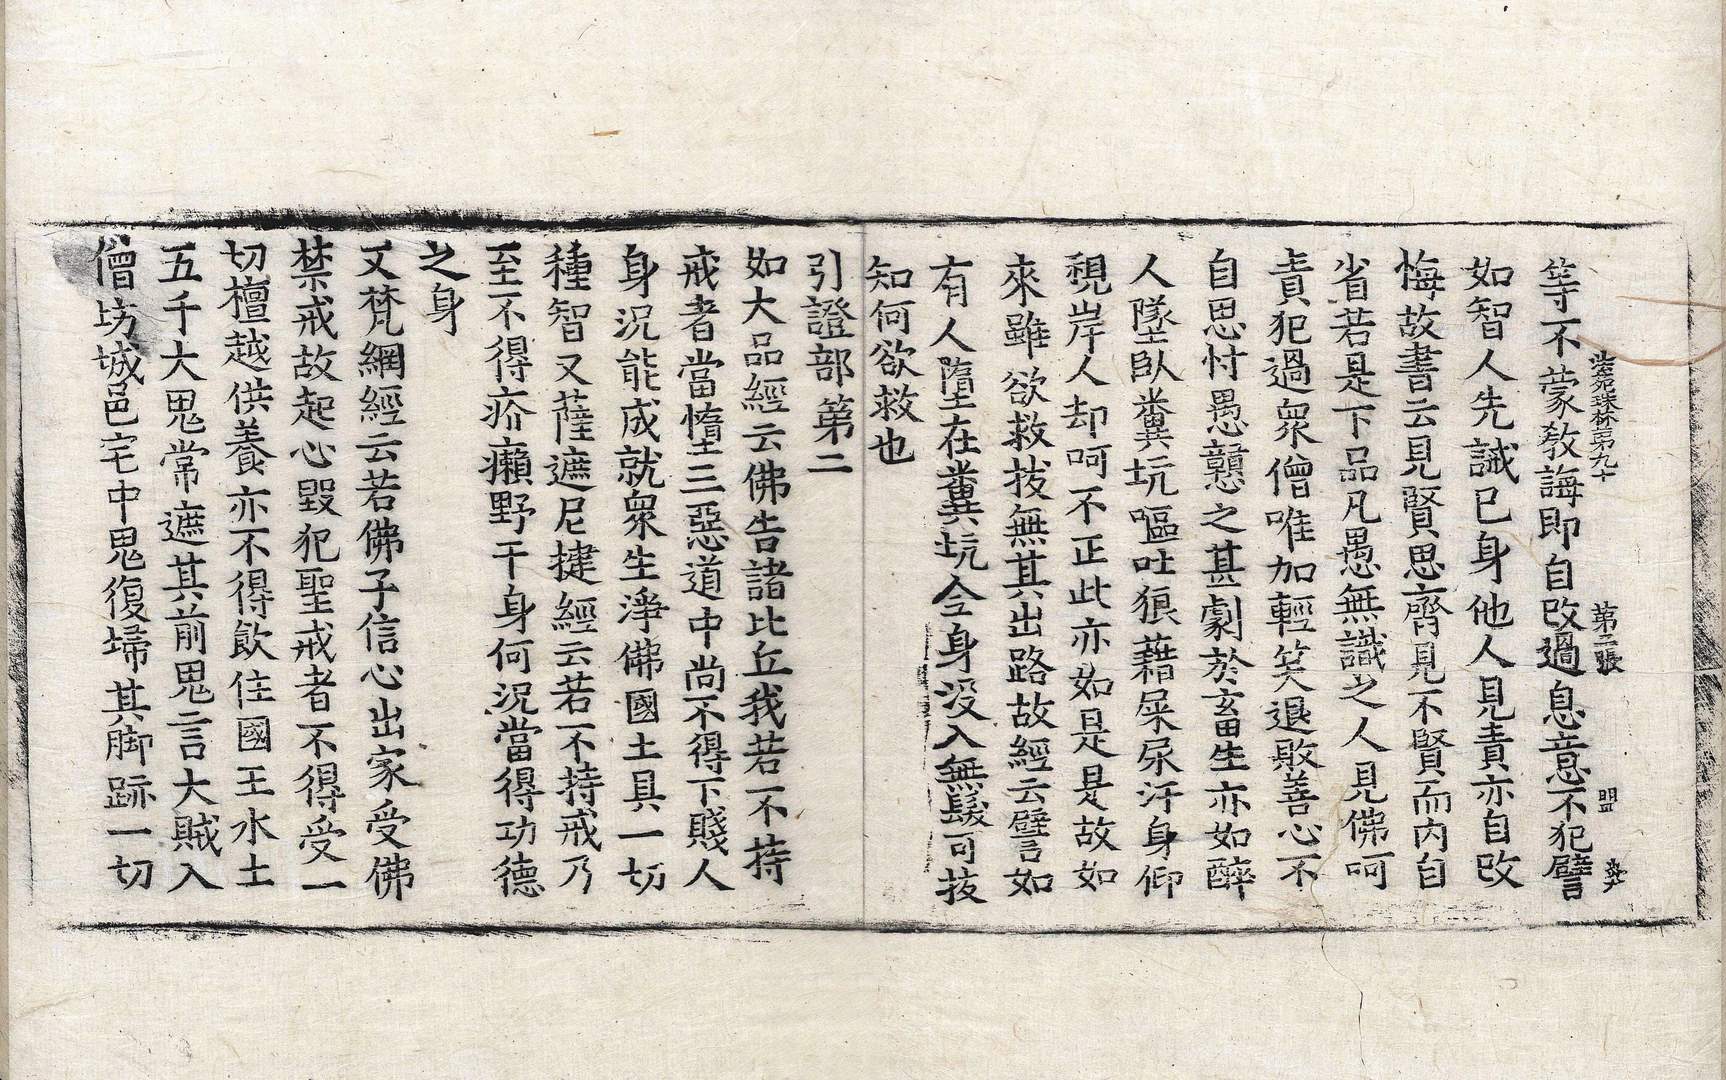 法苑珠林第九十　第二張　盟
等不蒙教誨即自改過息意不犯譬
如智人先誡已身他人見責亦自改
悔故書云見賢思齊見不賢而內自
省若是下品凡愚無識之人見佛呵
責犯過衆僧唯加輕笑退敗善心不
自思忖愚戇之甚劇於畜生亦如醉
人墜臥糞坑嘔吐狼藉屎尿汙身仰
視岸人却呵不正此亦如是是故如
來雖欲救拔無其出路故經云譬如
有人墮在糞坑全身没入無髮可拔
知何欲救也
引證部第二
如大品經云佛告諸比丘我若不持
戒者當墮三惡道中尚不得下賤人
身況能成就衆生淨佛國土具一切
種智又薩遮尼揵經云若不持戒乃
至不得疥癩野干身何況當得功德
之身
又梵網經云若佛子信心出家受佛
禁戒故起心毀犯聖戒者不得受一
切檀越供養亦不得飲佳國王水土
五千大鬼常遮其前鬼言大賊入
僧坊城邑宅中鬼復埽其脚跡一切